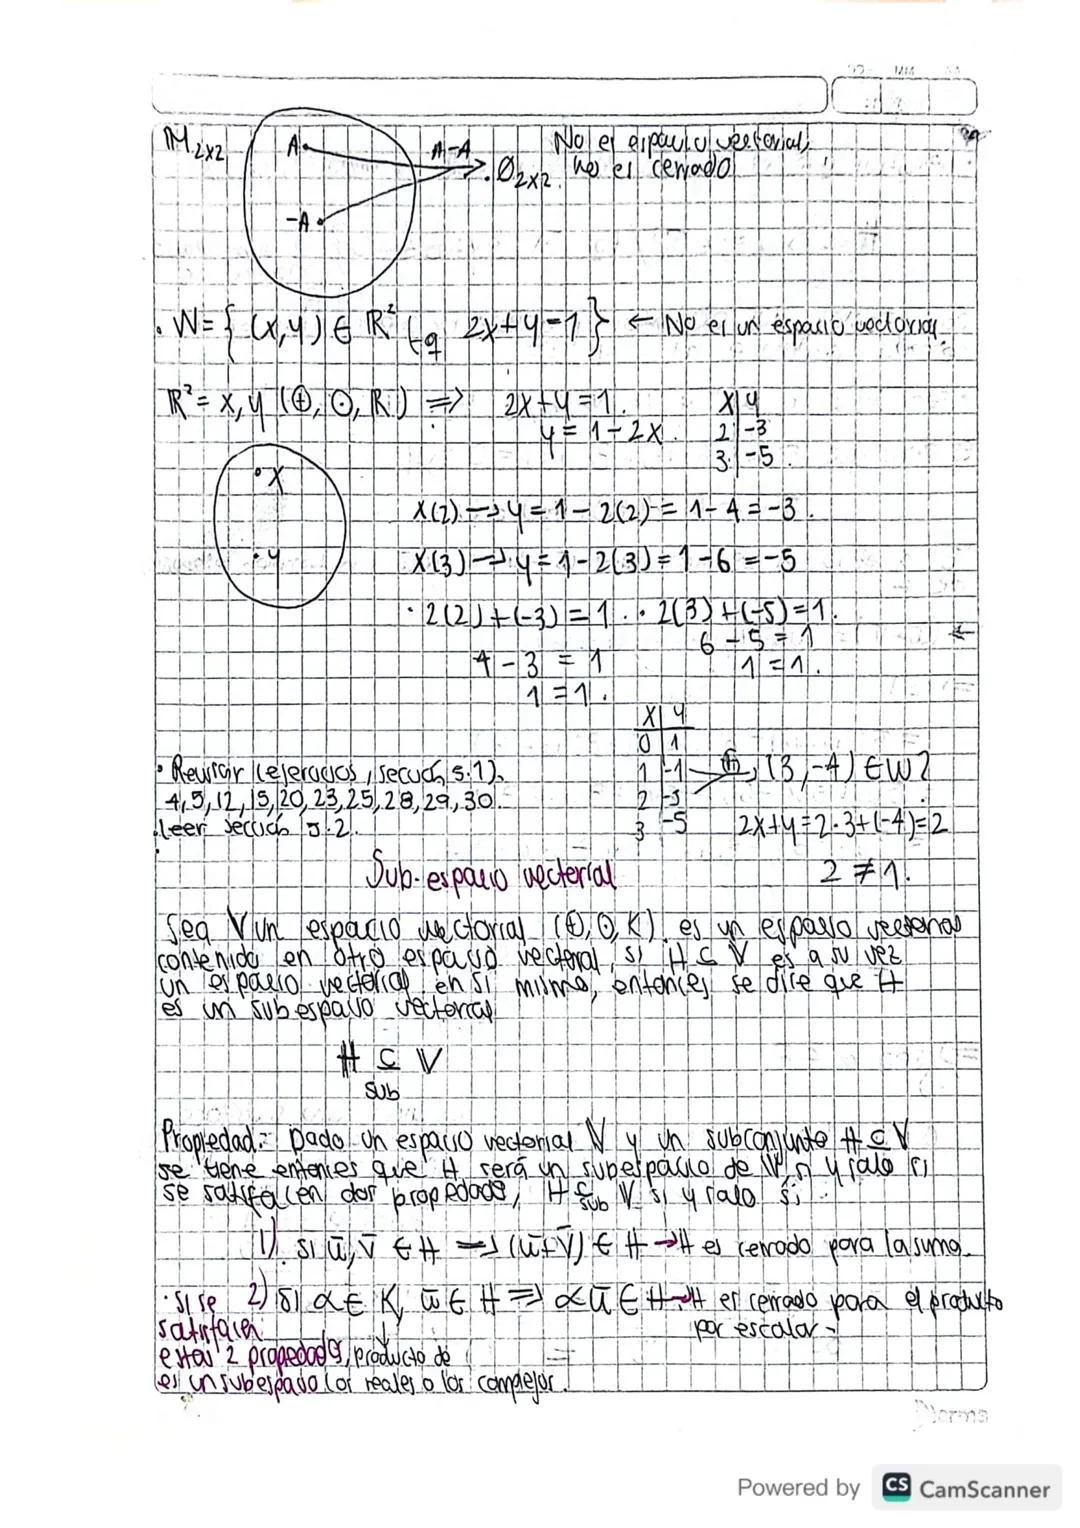 DD MM AA
M2x2
A
A-A
No es espacio vectorial,
. Ø2x2. no es cerrado
-A
· W= { (x,y) ∈ ℝ² tq 2x+y=1 } ← No es un espacio vectorial.
ℝ² = x, y (⊕, ⊙, ℝ) ⇒ 2x+y=1.
y = 1-2x.
x | y
2 | -3
3. | -5.
· x
· y
x(2) → y = 1-2(2) = 1-4 = -3.
x(3) → y = 1-2(3) = 1-6 = -5
· 2(2)+(-3) = 1. · 2(3)+(-5) = 1. ←
4-3 = 1
6-5 = 1
1 = 1.
1 = 1.
x | y
0 | 1
1 | -1
2 | -3
3 | -5
⊕, (3,-4) ∈ W?
2x+y = 2·3+(-4) = 2
2 ≠ 1.
· Revisar (ejercicios, sección 5.1).
4, 5, 12, 15, 20, 23, 25, 28, 29, 30.
Leer sección 5.2.
Sub-espacio vectorial
Sea V un espacio vectorial (⊕, ⊙, K). es un espacio vectorial
contenido en otro espacio vectorial, si H ⊆ V es a su vez
un espacio vectorial en sí mismo, entonces se dice que H
es un subespacio vectorial
H ⊆ V
sub
Propiedad: Dado un espacio vectorial V y un subconjunto H ⊆ V
se tiene entonces que H será un subespacio de V, si y solo si
se satisfacen dos propiedades, H ⊆sub V si y solo si
1). si ū, v̄ ∈ H ⇒ (ū+v̄) ∈ H → H es cerrado para la suma.
2) si α ∈ K, ū ∈ H ⇒ αū ∈ H → H es cerrado para el producto
por escalar -
· si se
satisfacen
estas 2 propiedades, producto de
es un subespacio los reales o los complejos.
Norma
Powered by CS CamScanner